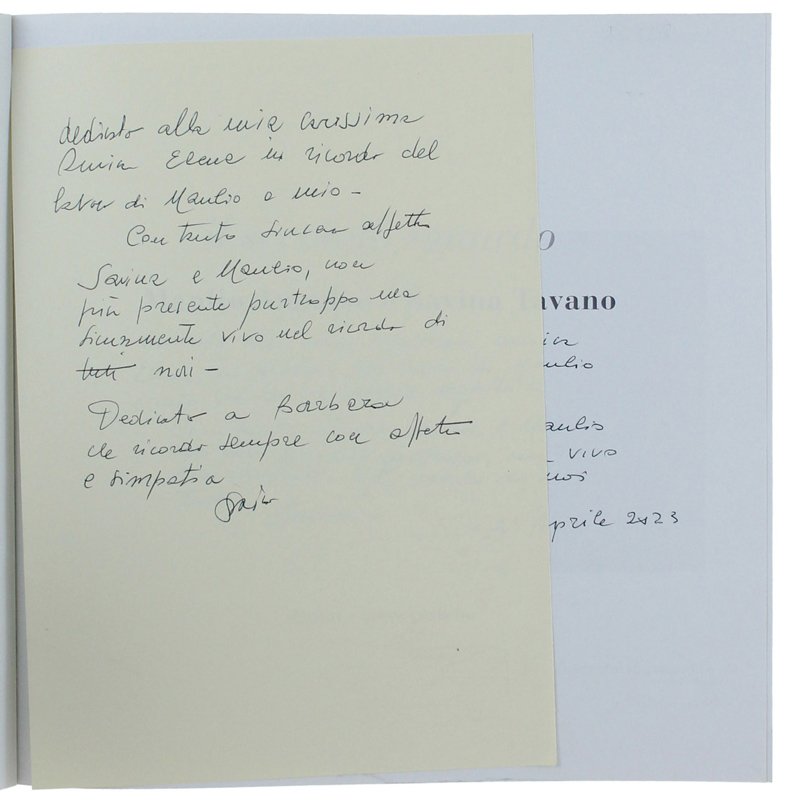 dedicato alla mia carissima
Elena in ricordo del
lavoro di Manlio e mio -
Con tanto sincero affetto
Savina e Manlio, non
più presente purtroppo ma
sicuramente vivo nel ricordo di
tutti noi -
Dedicato a Barbara
che ricordo sempre con affetto
e simpatia
o
avano
ina
anlio
anlio
vivo
noi
prile 2023